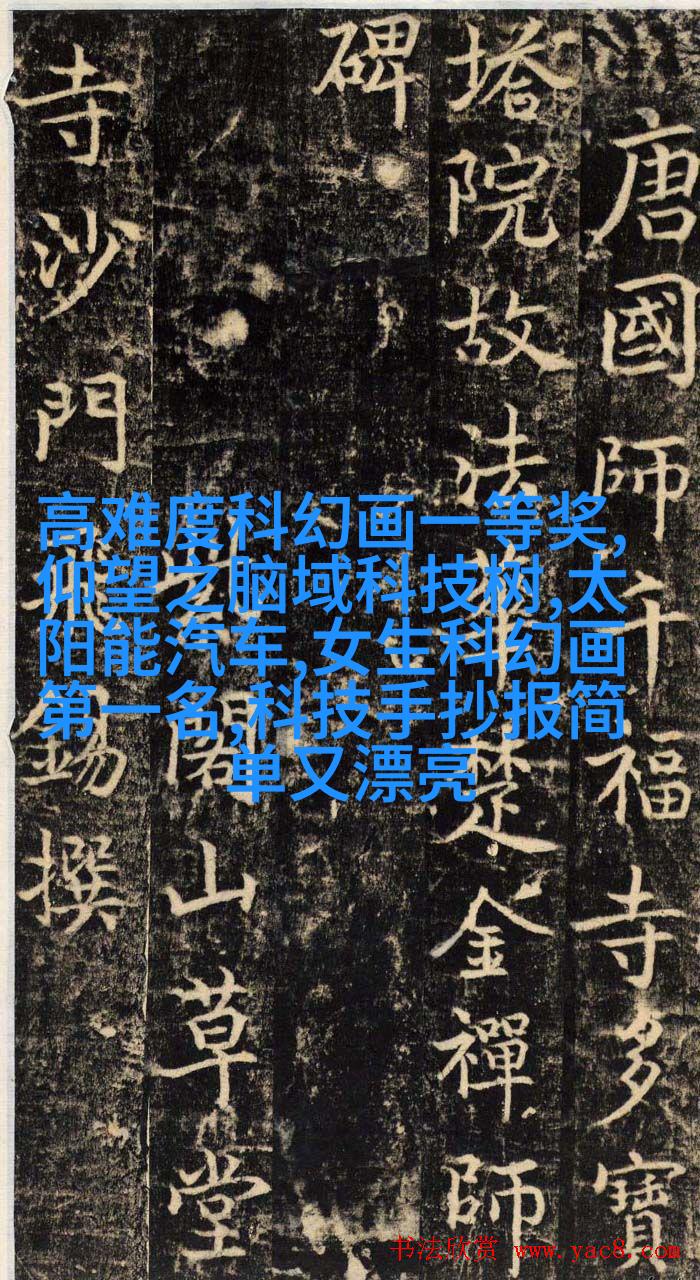 唐國師千福寺多寶
塔院故法華楚金禪師
碑
閣山草堂
寺沙門錫撰
高难度科幻画一等奖,
仰望之脑域科技树,太
阳能汽车,女生科幻画
第一名,科技手抄报简
单又漂亮
书法欣赏 www.yac8.com